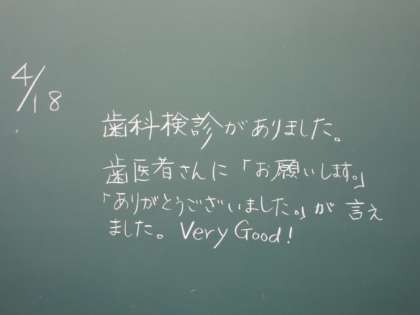 4/18
歯科検診がありました。
歯医者さんに「お願いします。」
「ありがとうございました。」が 言え
ました。Very Good!